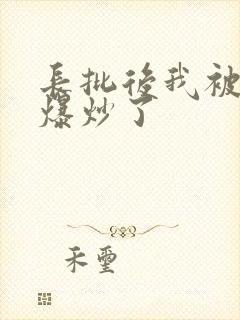 長批後我被
爆炒了
禾璽